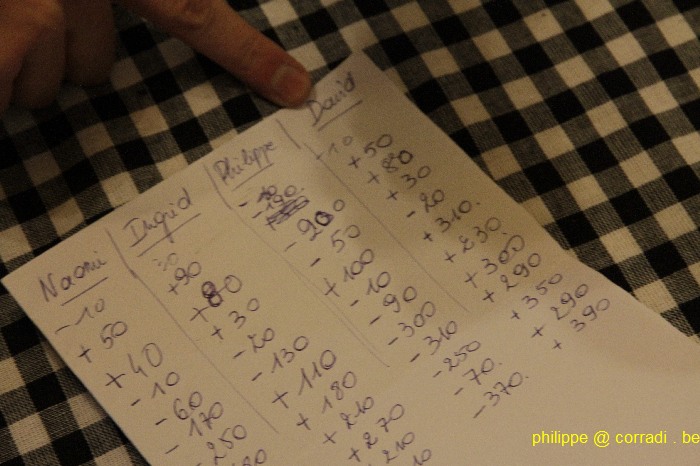 Naomi
-10
+50
+40
-10
-60
-170
250
Ingrid
+90
+80
+30
-20
-130
+110
+180
+210
+270
+210
Philippe
-10
-200
-50
+100
-10
-90
-300
-310
-250
-70.
-370.
David
+10
+50
+80
+30
-20
+310.
+230.
+300
+290
+350
+290
+390
philippe @ corradi . be